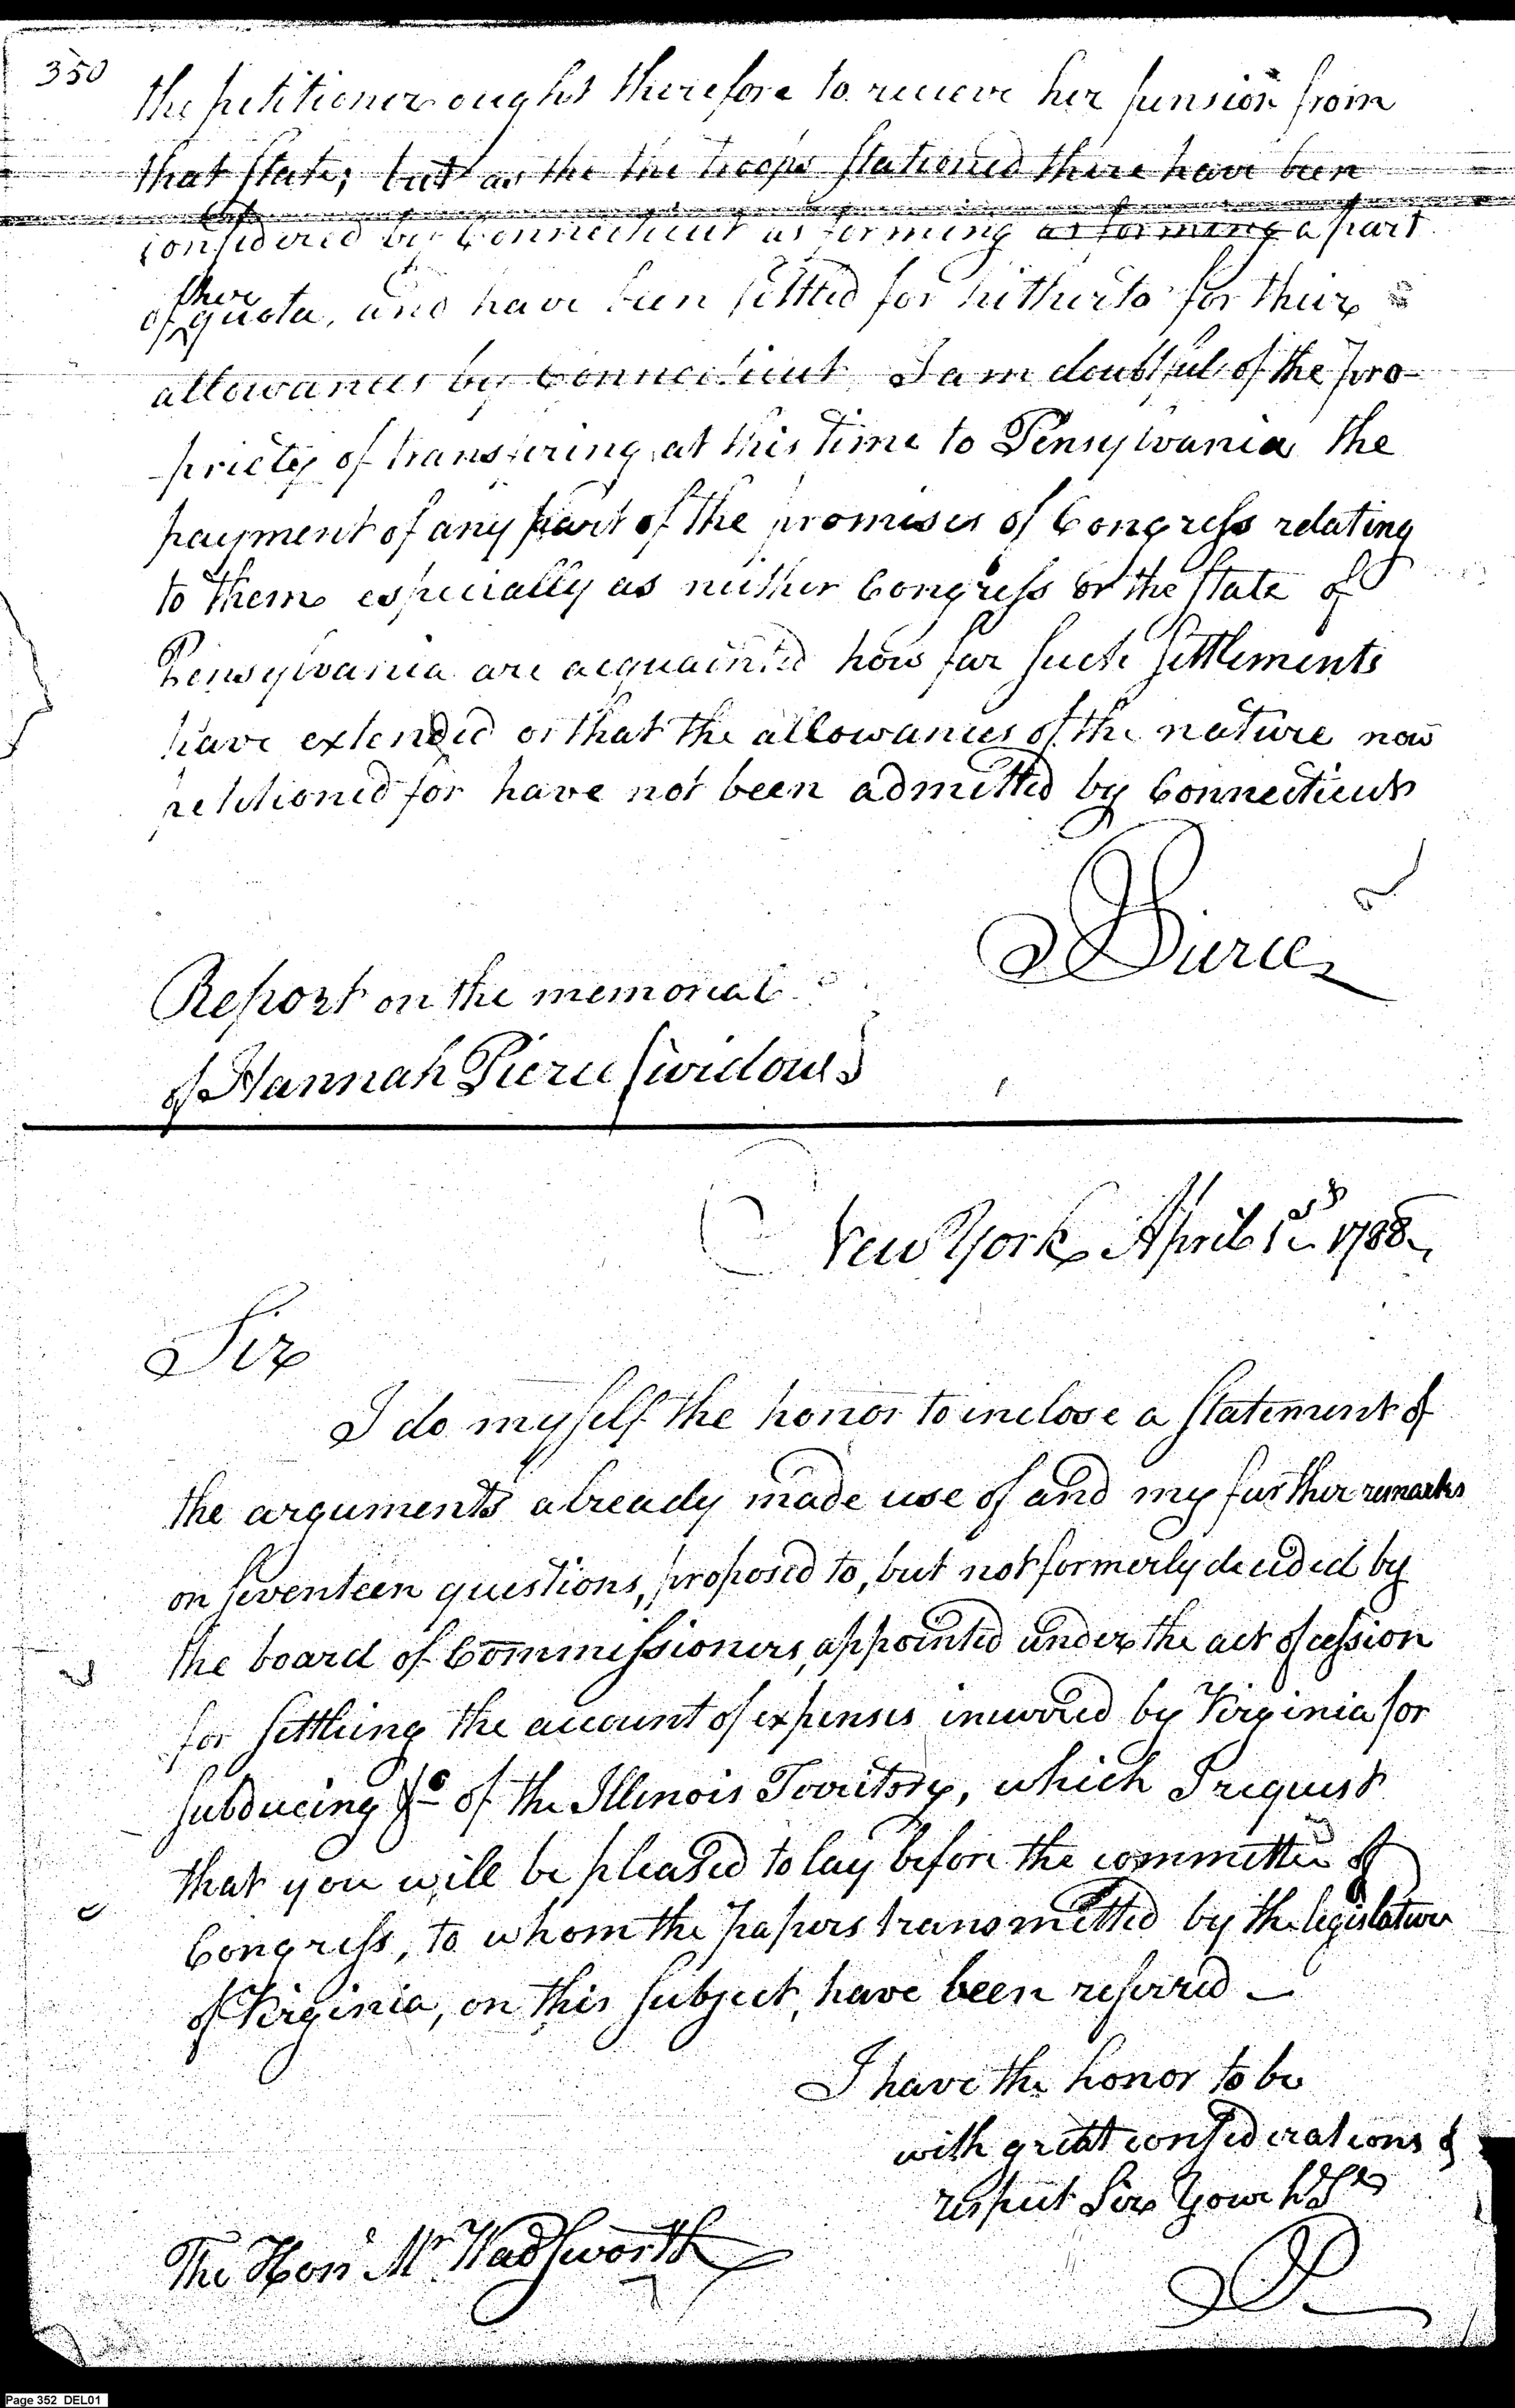 350
the petitioner ought therefore to receive her pension from
that State; but as the the troops stationed there have been
considered by Connecticut as forming as forming a part
their
of quota, and have been settled for hitherto for their
allowances by Connecticut I am doubtful of the pro-
priety of transfering at this time to Pensylvania the
payment of any part of the promises of Congress relating
to them especially as neither Congress or the State of
Pensylvania are acquainted how far such settlements
have extended or that the allowances of the nature now
petitioned for have not been admitted by Connecticut
Pierce
Report on the memorial
of Hannah Pierce (widow)
New York April 1st 1788
Sir
I do myself the honor to inclose a statement of
the arguments already made use of and my further remarks
on seventeen questions, proposed to, but not formerly decided by
the board of Commissioners, appointed under the act of cession
for settling the account of expenses incurred by Virginia for
subducing &c of the Illinois Territory, which I request
that you will be pleased to lay before the committee of
Congress, to whom the papers transmitted by the legislature
of Virginia, on this subject, have been referred —
I have the honor to be
with great considerations &
respect Sir Your
The Honl Mr Wadsworth
Page 352 DEL01